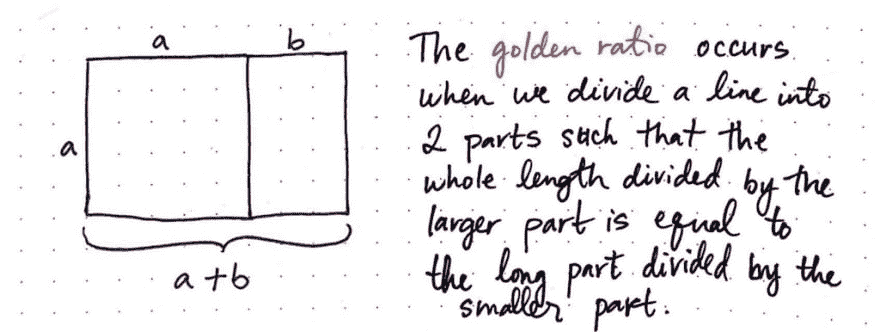 a b
a
a+b
The golden ratio occurs
when we divide a line into
2 parts such that the
whole length divided by the
larger part is equal to
the long part divided by the
smaller part.